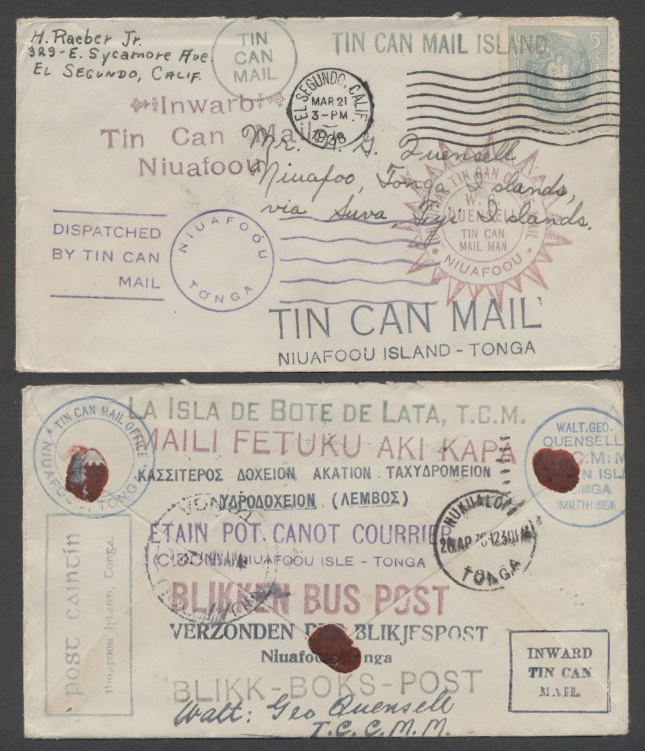 H. Raeber Jr.
329-E. Sycamore Ave.
El Segundo, Calif.
TIN
CAN
MAIL
TIN CAN MAIL ISLAND
5
EL SEGUNDO, CALIF.
MAR 21
3-PM
1938
Inward
Tin Can Mail
Niuafoou
Mr. W. G. Quensell
Niuafoo, Tonga Islands,
via Suva, Fiji Islands.
TIN CAN
W. G.
QUENSELL
TIN CAN
MAIL MAN
NIUAFOOU
DISPATCHED
BY TIN CAN
MAIL
NIUAFOÓU
TONGA
TIN CAN MAIL
NIUAFOOU ISLAND - TONGA
LA ISLA DE BOTE DE LATA, T.C.M.
TIN CAN MAIL OFFICE
NIUAFOOU, TONGA
MAILI FETUKU AKI KAPA
WALT. GEO.
QUENSELL
TONGA
SOUTH SEA
ΚΑΣΣΙΤΕΡΟΣ ΔΟΧΕΙΟΝ ΑΚΑΤΙΟΝ ΤΑΧΥΔΡΟΜΕΙΟΝ
ΥΔΡΟΔΟΧΕΙΟΝ (ΛΕΜΒΟΣ)
NUKUALOFA
TONGA
ETAIN POT. CANOT COURRIER
NIUAFOOU ISLE - TONGA
post caintín
Niuafoou Irland, Tonga.
BLIKKEN BUS POST
VERZONDEN PER BLIKJESPOST
Niuafoou Tonga
BLIKK-BOKS-POST
INWARD
TIN CAN
MAIL
Walt: Geo Quensell
T.C.C.M.M.